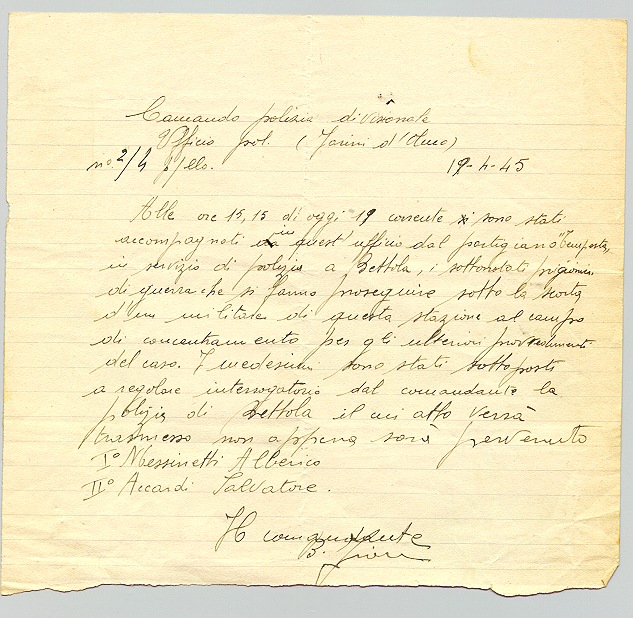 Comando polizia divisionale
Ufficio pol. (Farini d'Olmo)
n° 2/4 19-4-45
Alle ore 15,15 di oggi 19 corrente si sono stati
accompagnati in quest'ufficio dal partigiano "Tempesta"
in servizio di polizia a Bettola, i sottonotati prigionieri
di guerra che si fanno proseguire sotto la scorta
d'un militare di questa stazione al campo
di concentramento per gli ulteriori provvedimenti
del caso. I medesimi sono stati sottoposti
a regolare interrogatorio dal comandante la
polizia di Bettola il cui atto verrà
trasmesso non appena sarà pervenuto
I° Messinetti Alberico
II° Accardi Salvatore.
Il comandante